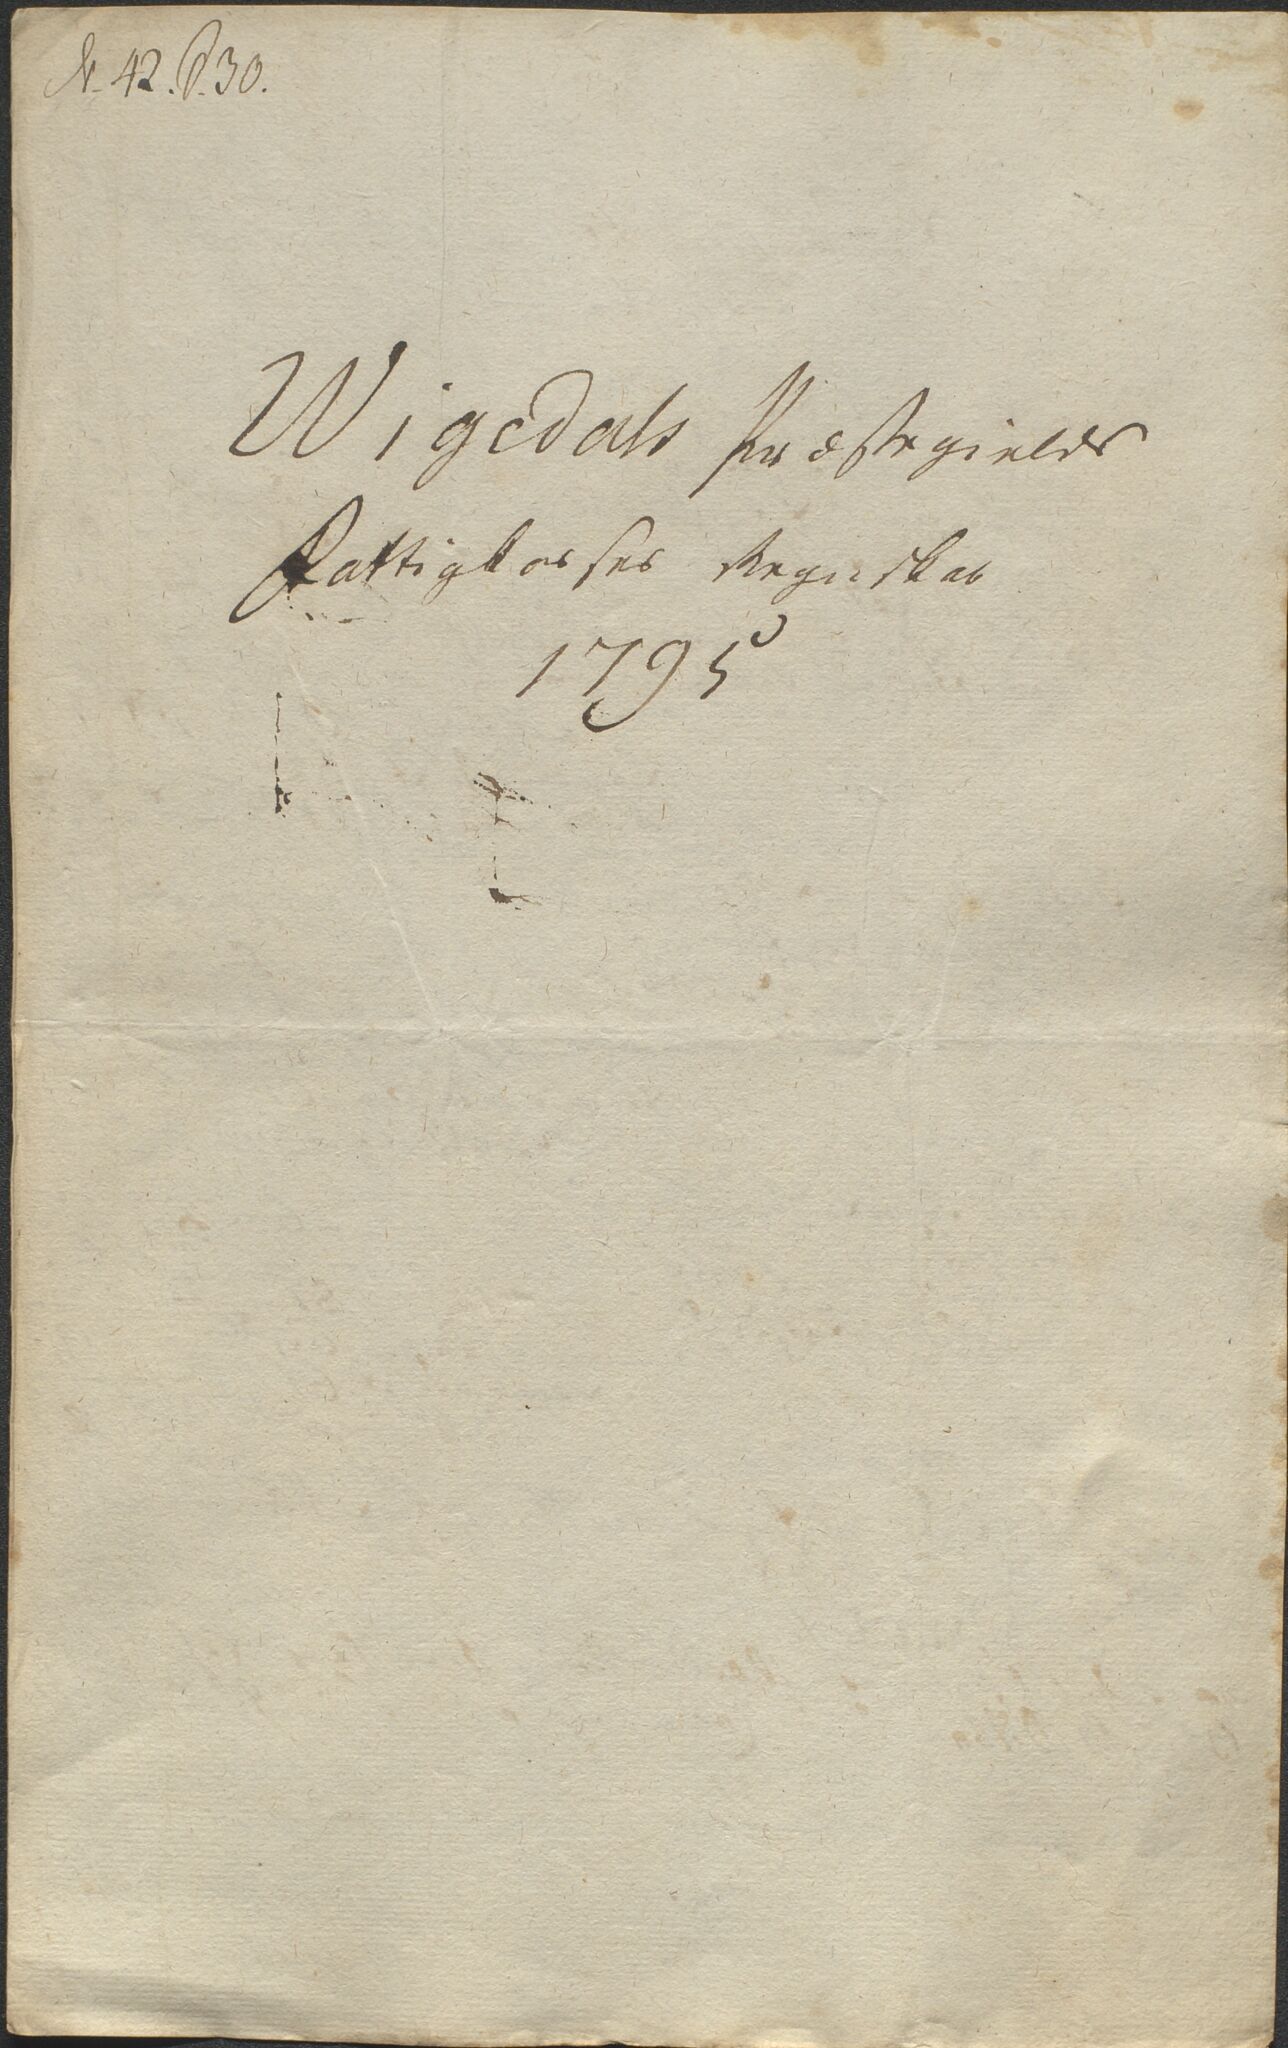 N. 42. P. 30.
Wigedals Præstegields
Fattigkasses Regnskab
1795